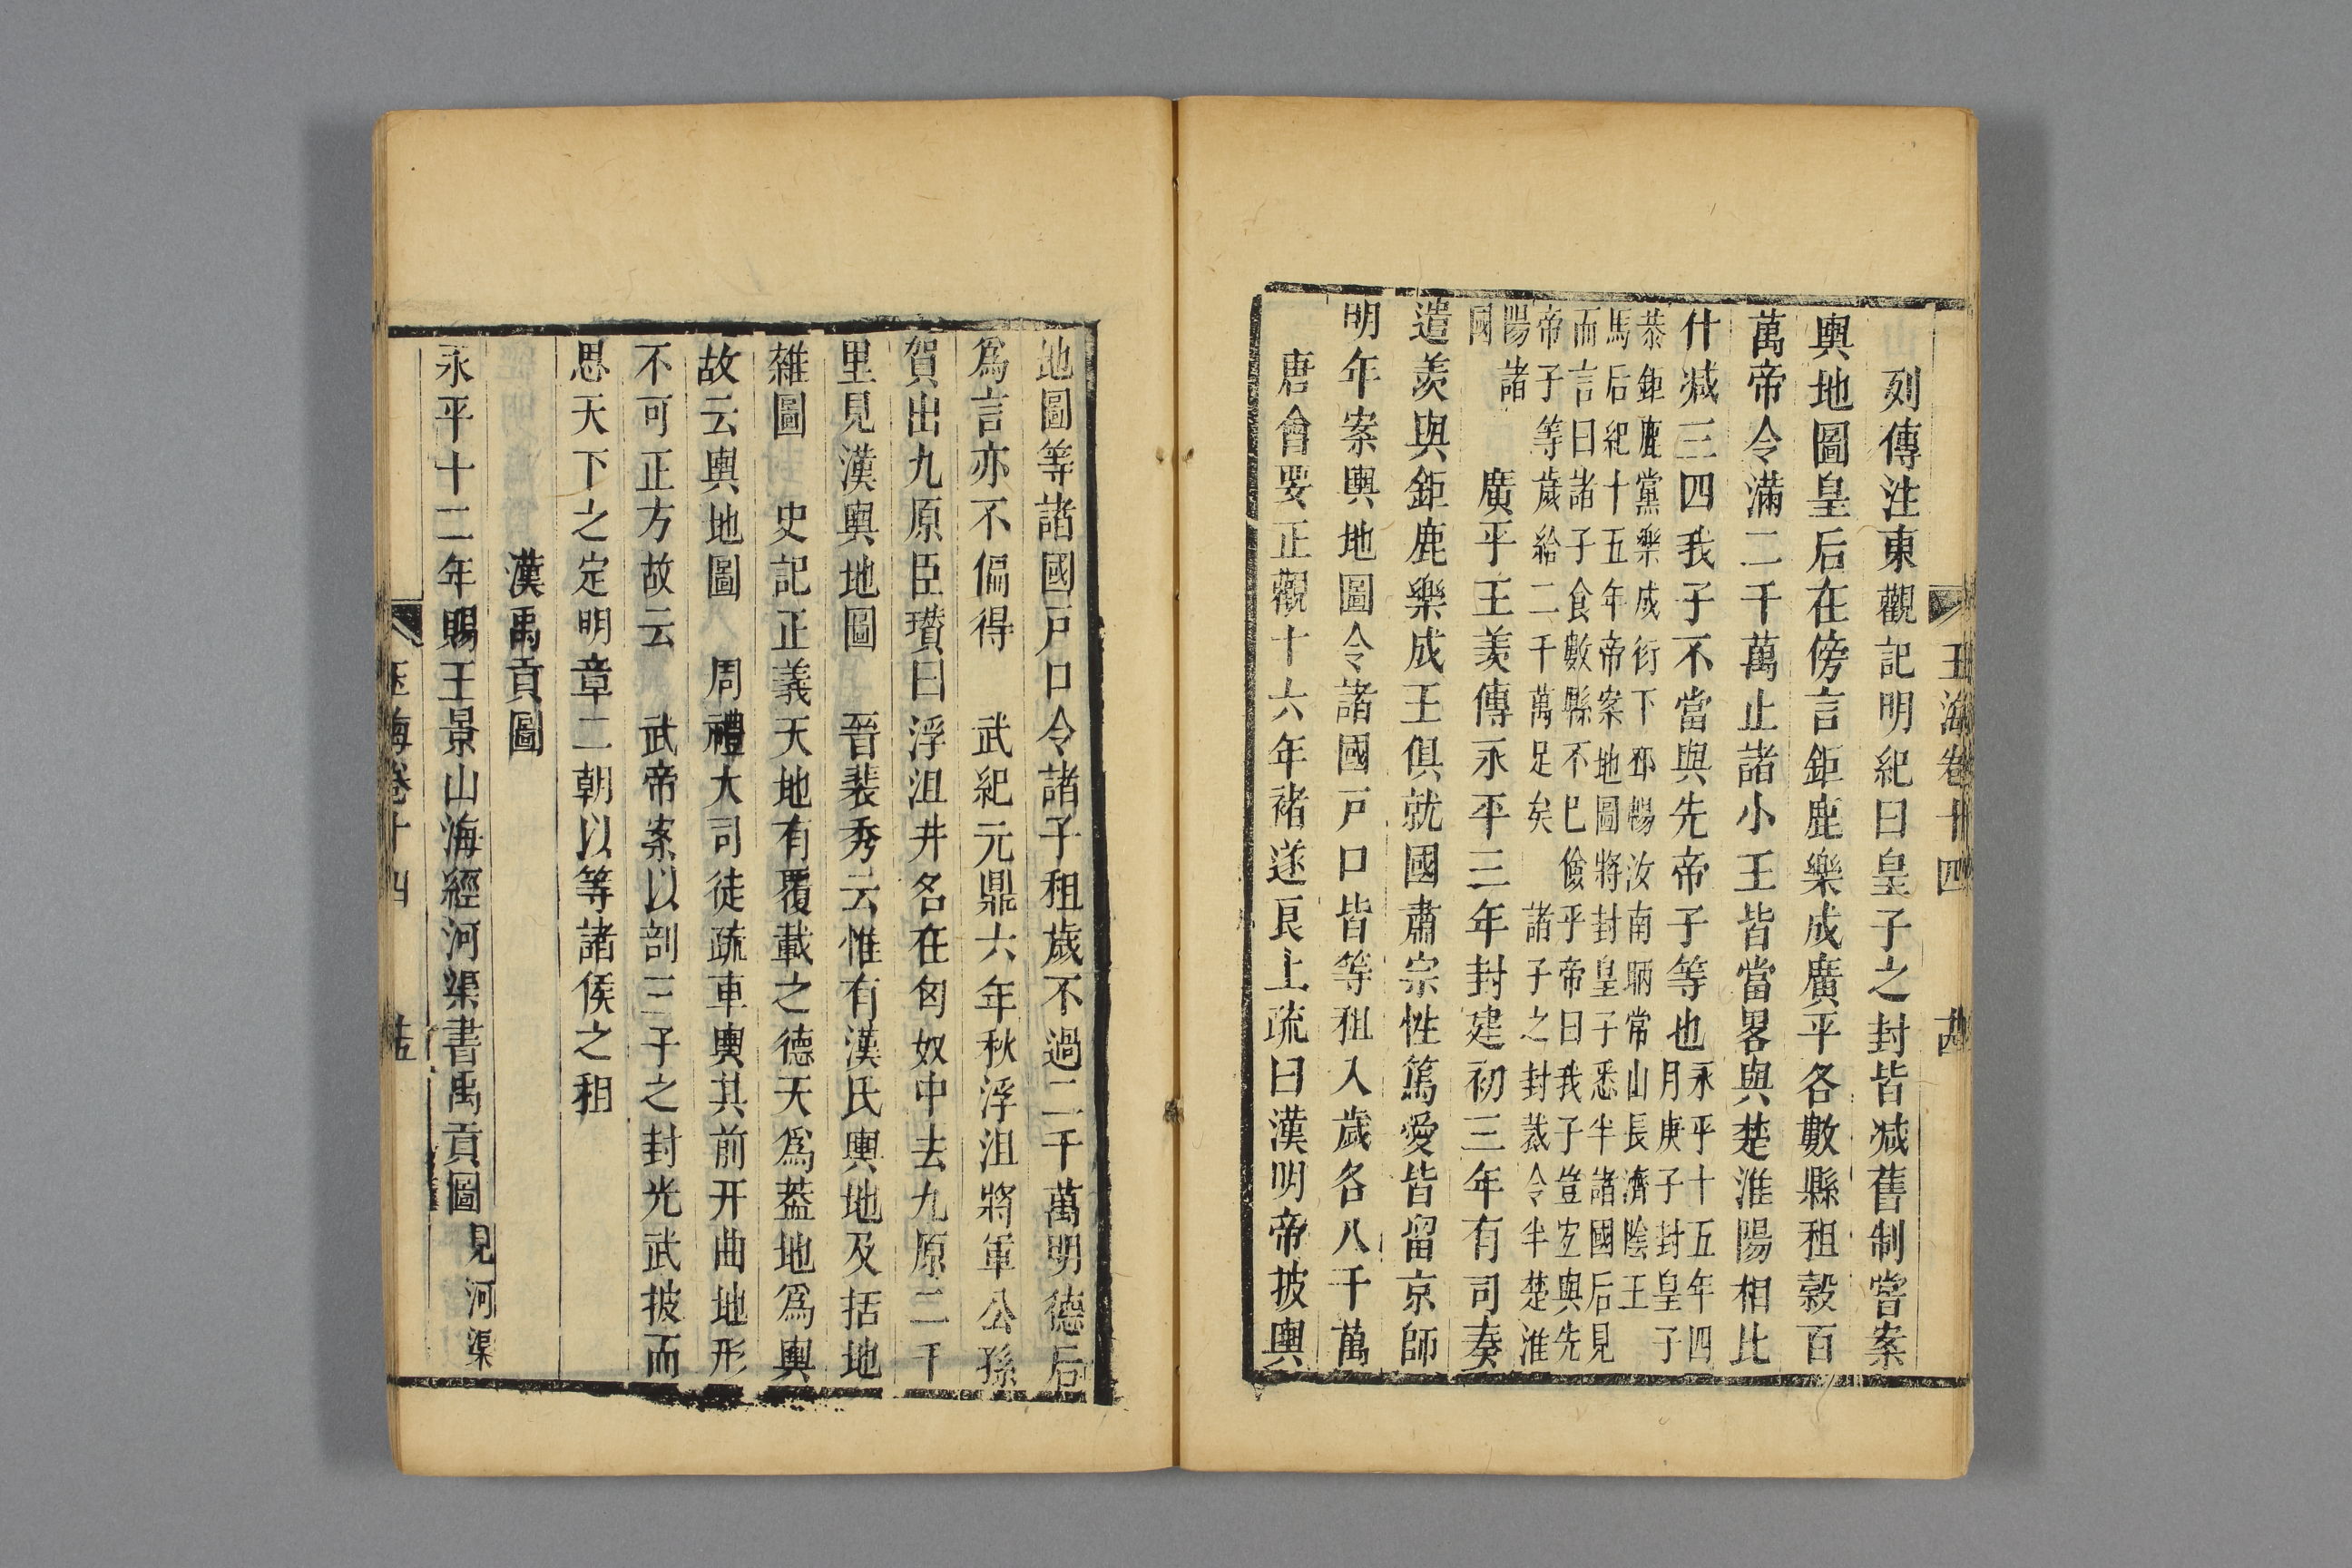 玉海卷十四
列傳注東觀記明紀曰皇子之封皆減舊制嘗案
輿地圖皇后在傍言鉅鹿樂成廣平各數縣租穀百
萬帝令滿二千萬止諸小王皆當畧與楚淮陽相比
什減三四我子不當與先帝子等也永平十五年四
月庚子封皇子
恭鉅鹿黨樂成衍下邳暢汝南昞常山長濟陰王
馬后紀十五年帝案地圖將封皇子悉半諸國后見
而言曰諸子食數縣不已儉乎帝曰我子豈宜與先
帝子等歲給二千萬足矣 諸子之封裁令半楚淮
陽諸
國
廣平王羨傳永平三年封建初三年有司奏
遣羨與鉅鹿樂成王俱就國肅宗性篤愛皆留京師
明年案輿地圖令諸國戶口皆等租入歲各八千萬
唐會要正觀十六年褚遂良上疏曰漢明帝披輿
地圖等諸國戶口令諸子租歲不過二千萬明德后
爲言亦不偏得 武紀元鼎六年秋浮沮將軍公孫
賀出九原臣瓚曰浮沮井名在匈奴中去九原二千
里見漢輿地圖 晉裴秀云惟有漢氏輿地及括地
雜圖 史記正義天地有覆載之德天爲葢地爲輿
故云輿地圖 周禮大司徒疏車輿其前开曲地形
不可正方故云 武帝案以剖三子之封光武披而
思天下之定明章二朝以等諸侯之租
漢禹貢圖
永平十二年賜王景山海經河渠書禹貢圖見河渠
玉海卷十四